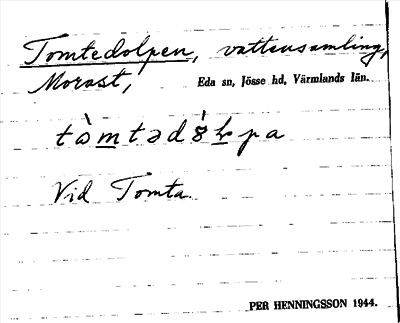 Tomtedolpen, vattensamling,
Morast, Eda sn, Jösse hd, Värmlands län.
Vid Tomta.
PER HENNINGSSON 1944.